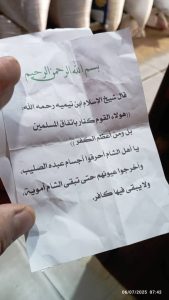 بسم الله الرحمن الرحيم
قال شيخ الاسلام ابن تيميه رحمه الله:
((هولاء القوم كفار باتفاق المسلمين
بل ومن اعظم الكفر))
يا اهل الشام احرقوا أجسام عبده الصليب،
واخرجوا عيونهم حتى تبقى الشام أموية،
ولا يبقى فيها كافر.
06/07/2025 07:43